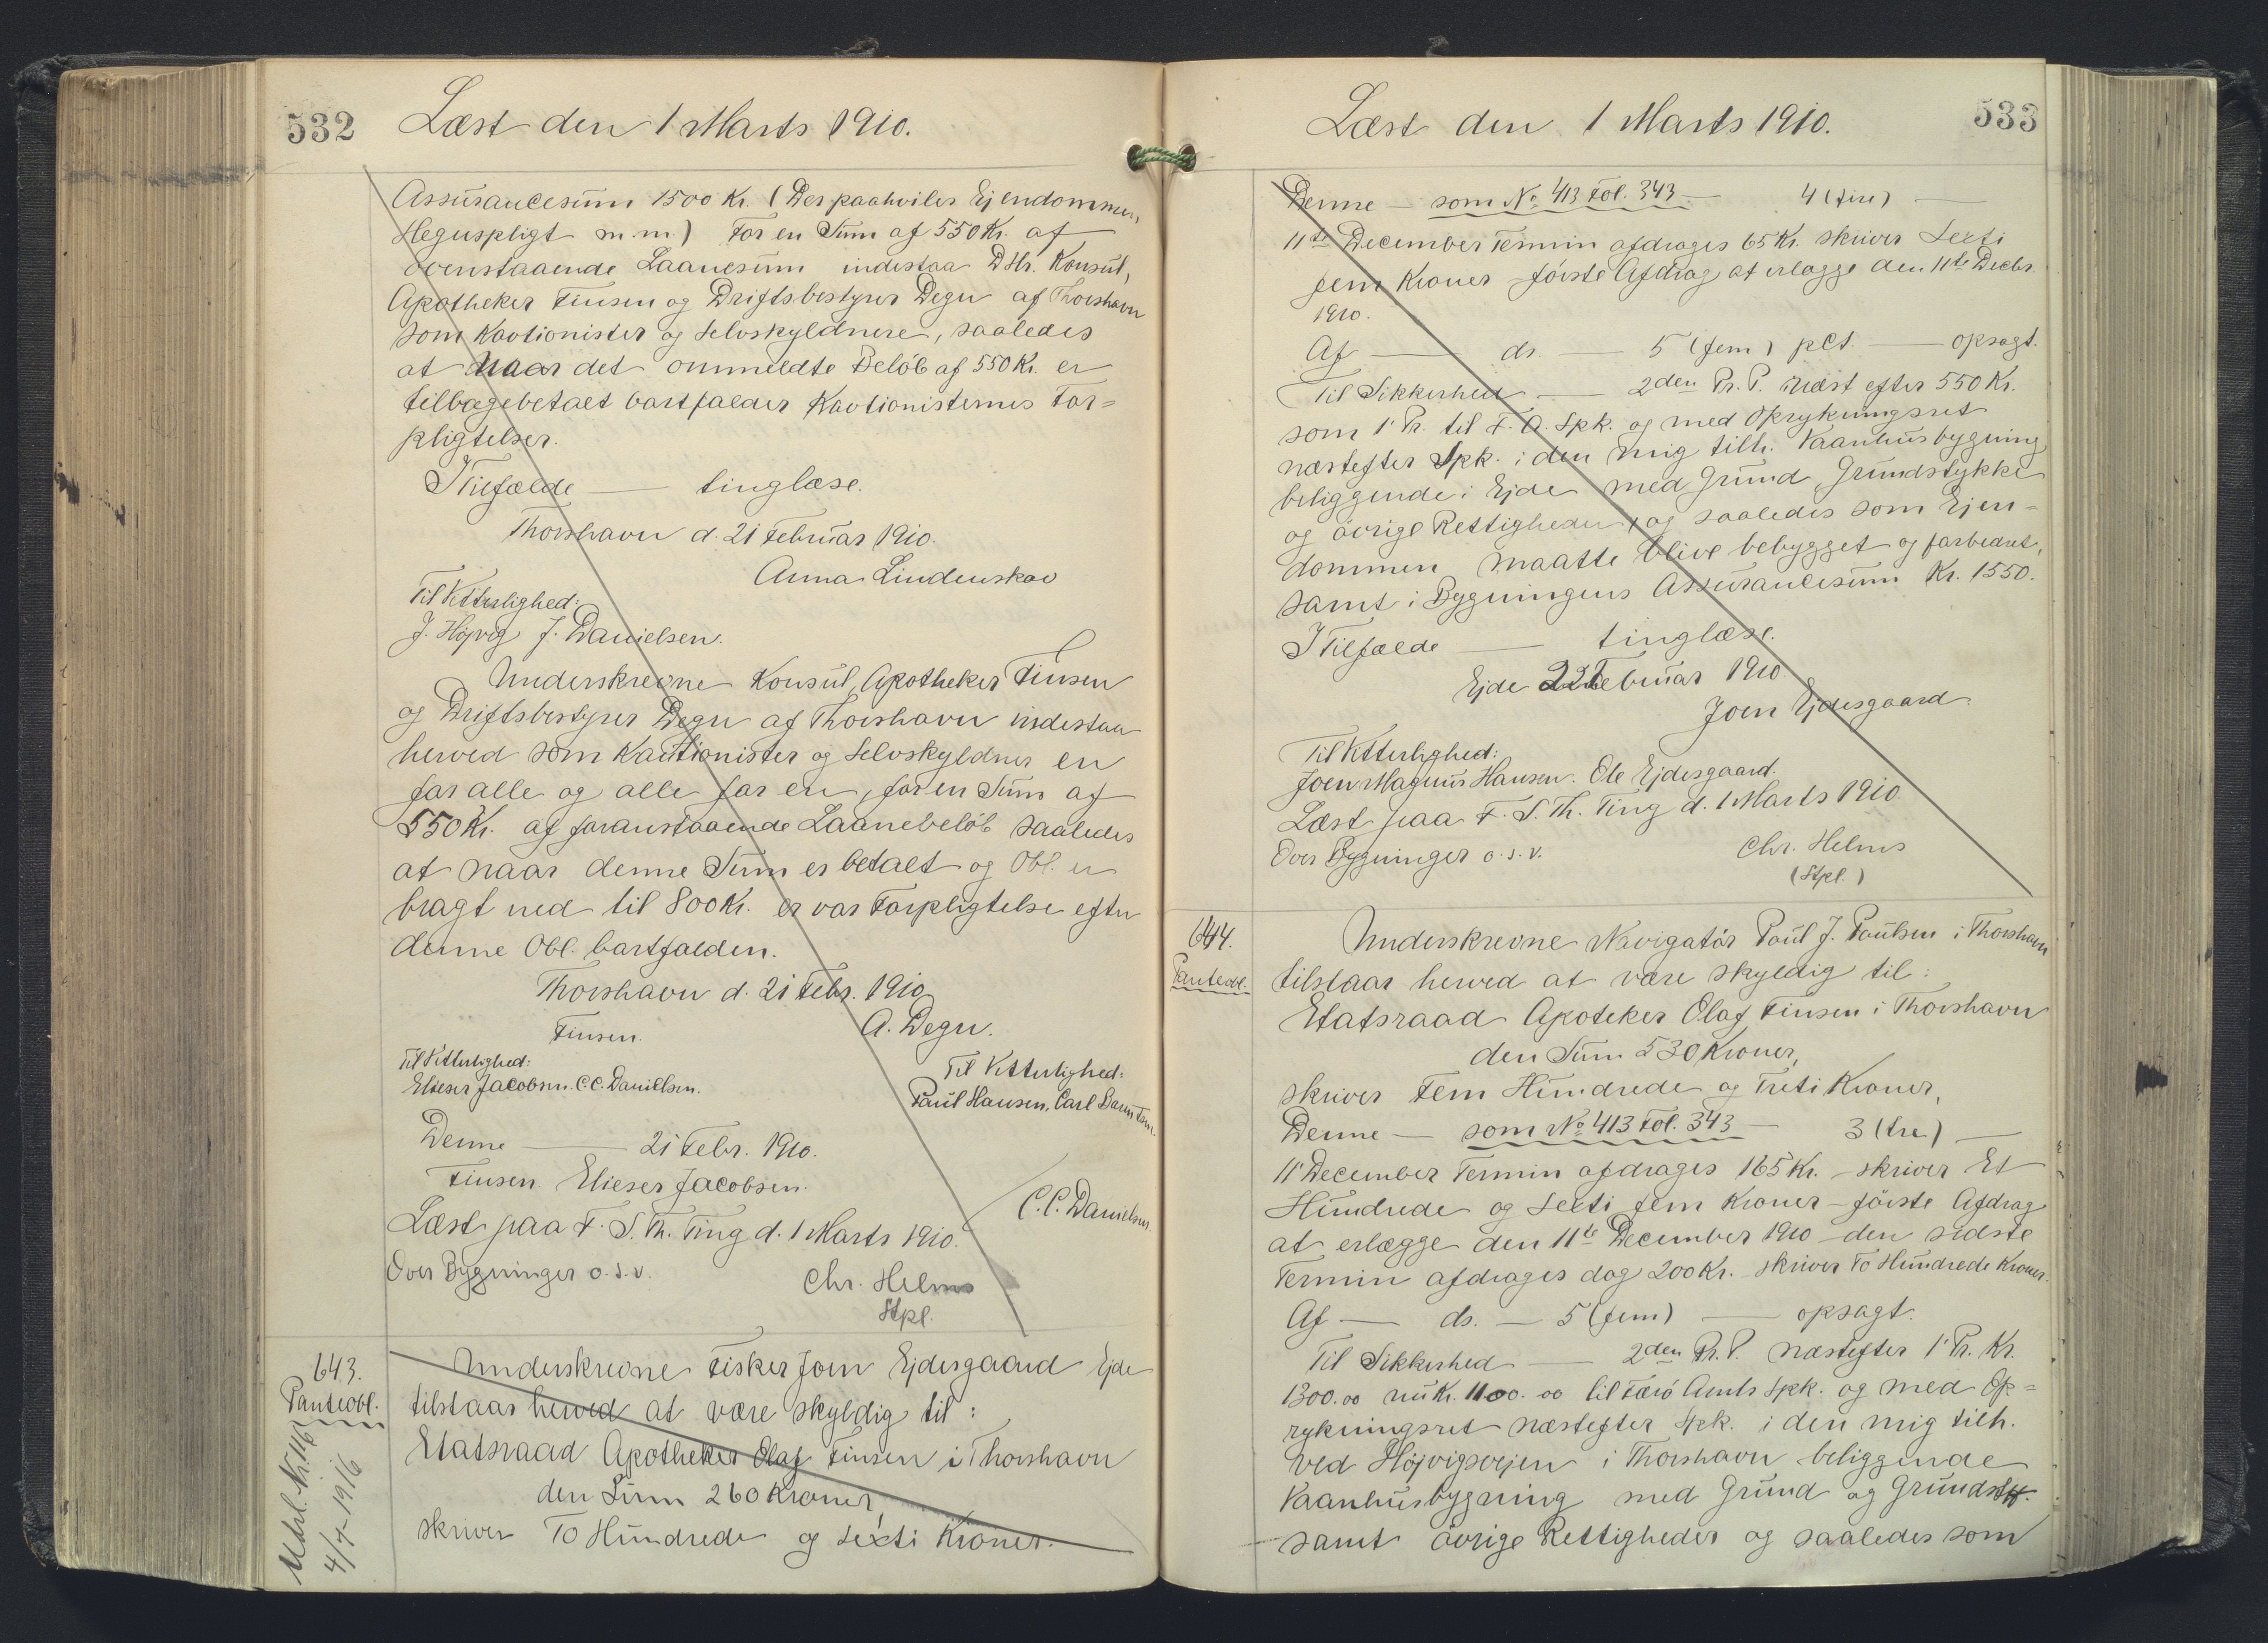 532
Læst den 1 Marts 1910.
Assurancesum 1500 Kr. (Der paahviler Ejendommen,
Hegnspligt m.m.) For en Sum af 550 Kr. af
ovenstaaende Laanesum indestaa DHr. Konsul,
Apotheker Finsen og Driftsbestyrer Degn af Thorshavn
som Kavtionister og Selvskyldnere, saaledes
at naar det ommeldte Beløb af 550 Kr. er
tilbagebetalt bortfalder Kavtionisternes For=
pligtelser.
I Tilfælde — tinglæse.
Thorshavn d. 21 Februar 1910.
Anna Lindenskov
Til Vitterlighed:
J. Højvig J. Danielsen.
Underskrevne Konsul, Apotheker Finsen
og Driftsbestyrer Degn af Thorshavn indestaa
herved som Kautionister og Selvskyldner en
for alle og alle for en, for en Sum af
550 Kr. af foranstaaende Laanebeløb saaledes
at naar denne Sum er betalt og Obl. er
bragt ned til 800 Kr. er vor Forpligtelse efter
denne Obl. bortfalden.
Thorshavn d. 21 Febr. 1910
Finsen. A. Degn.
Til Vitterlighed:
Elieser Jacobsen. C.C. Danielsen.
Til Vitterlighed:
Paul Hansen. Carl
Denne — 21 Febr. 1910.
Finsen. Elieser Jacobsen.
C.C. Danielsen.
Læst paa F. S. Th. Ting d. 1 Marts 1910.
Over Bygninger o.s.v.
Chr. Helms
Stpl.
643.
Panteobl.
Udsl. Nr. 116
4/7-1916
Underskrevne Fisker Joen Ejdesgaard Ejde
tilstaar herved at være skyldig til:
Etatsraad Apotheker Olaf Finsen i Thorshavn
den Sum 260 Kroner,
skriver To Hundrede og Sexti Kroner.
533
Læst den 1 Marts 1910.
Denne — som No 413 Fol. 343 — 4 (fire) —
11te December Termin afdrages 65 Kr. skriver Sexti
fem Kroner første Afdrag at erlægge den 11te Decbr.
1910.
Af — ds. — 5 (fem) pCt. — opsagt.
Til Sikkerhed — 2den Pr. P. næst efter 550 Kr.
som 1' Pr. til F. A. Spk. og med Oprykningsret
næstefter Spk. i den mig tilh. Vaanhusbygning
beliggende i Ejde med Grund, Grundstykke
og øvrige Rettigheder, og saaledes som Ejen=
dommen maatte blive bebygget og forbedret,
samt i Bygningens Assurancesum Kr. 1550.
I Tilfælde — tinglæse.
Ejde 22 Februar 1910
Joen Ejdesgaard.
Til Vitterlighed:
Joen Magnus Hansen. Ole Ejdesgaard.
Læst paa F. S. Th. Ting d. 1 Marts 1910
Over Bygninger o.s.v.
Chr. Helms
(Stpl.)
644.
Panteobl.
Underskrevne Navigatør Poul J. Poulsen i Thorshavn
tilstaar herved at være skyldig til:
Etatsraad Apoteker Olaf Finsen i Thorshavn
den Sum 530 Kroner,
skriver Fem Hundrede og Treti Kroner,
Denne — som No 413 Fol. 343 — 3 (tre) —
11' December Termin afdrages 165 Kr. skriver Et
Hundrede og Sexti fem Kroner - første Afdrag
at erlægge den 11te December 1910 - den sidste
Termin afdrages dog 200 Kr. skriver To Hundrede Kroner.
Af — ds. — 5 (fem) — opsagt.
Til Sikkerhed — 2den Pr. P. næstefter 1' Pr. Kr.
1300.00 nu Kr. 1100.00 til Færø Amts Spk. og med Op=
rykningsret næstefter Spk. i den mig tilh.
ved Højvigsvejen i Thorshavn beliggende
Vaanhusbygning med Grund og Grundst.
samt øvrige Rettigheder og saaledes som